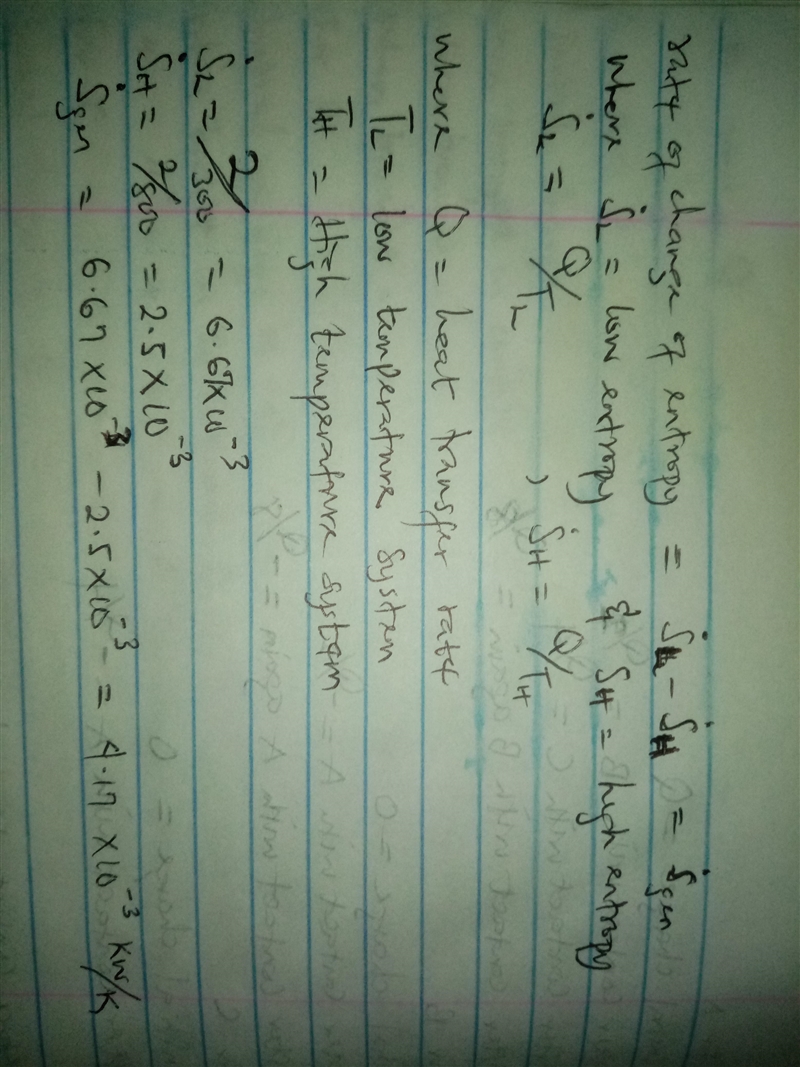 rate of change of entropy = ṠL - ṠH = Ṡgen
where ṠL = low entropy & ṠH = high entropy
ṠL = Q/TL , ṠH = Q/TH
where Q = heat transfer rate
TL = low temperature system
TH = High temperature system
ṠL = 2/300 = 6.67×10⁻³
ṠH = 2/800 = 2.5×10⁻³
Ṡgen = 6.67×10⁻³ - 2.5×10⁻³ = 4.17×10⁻³ kW/K